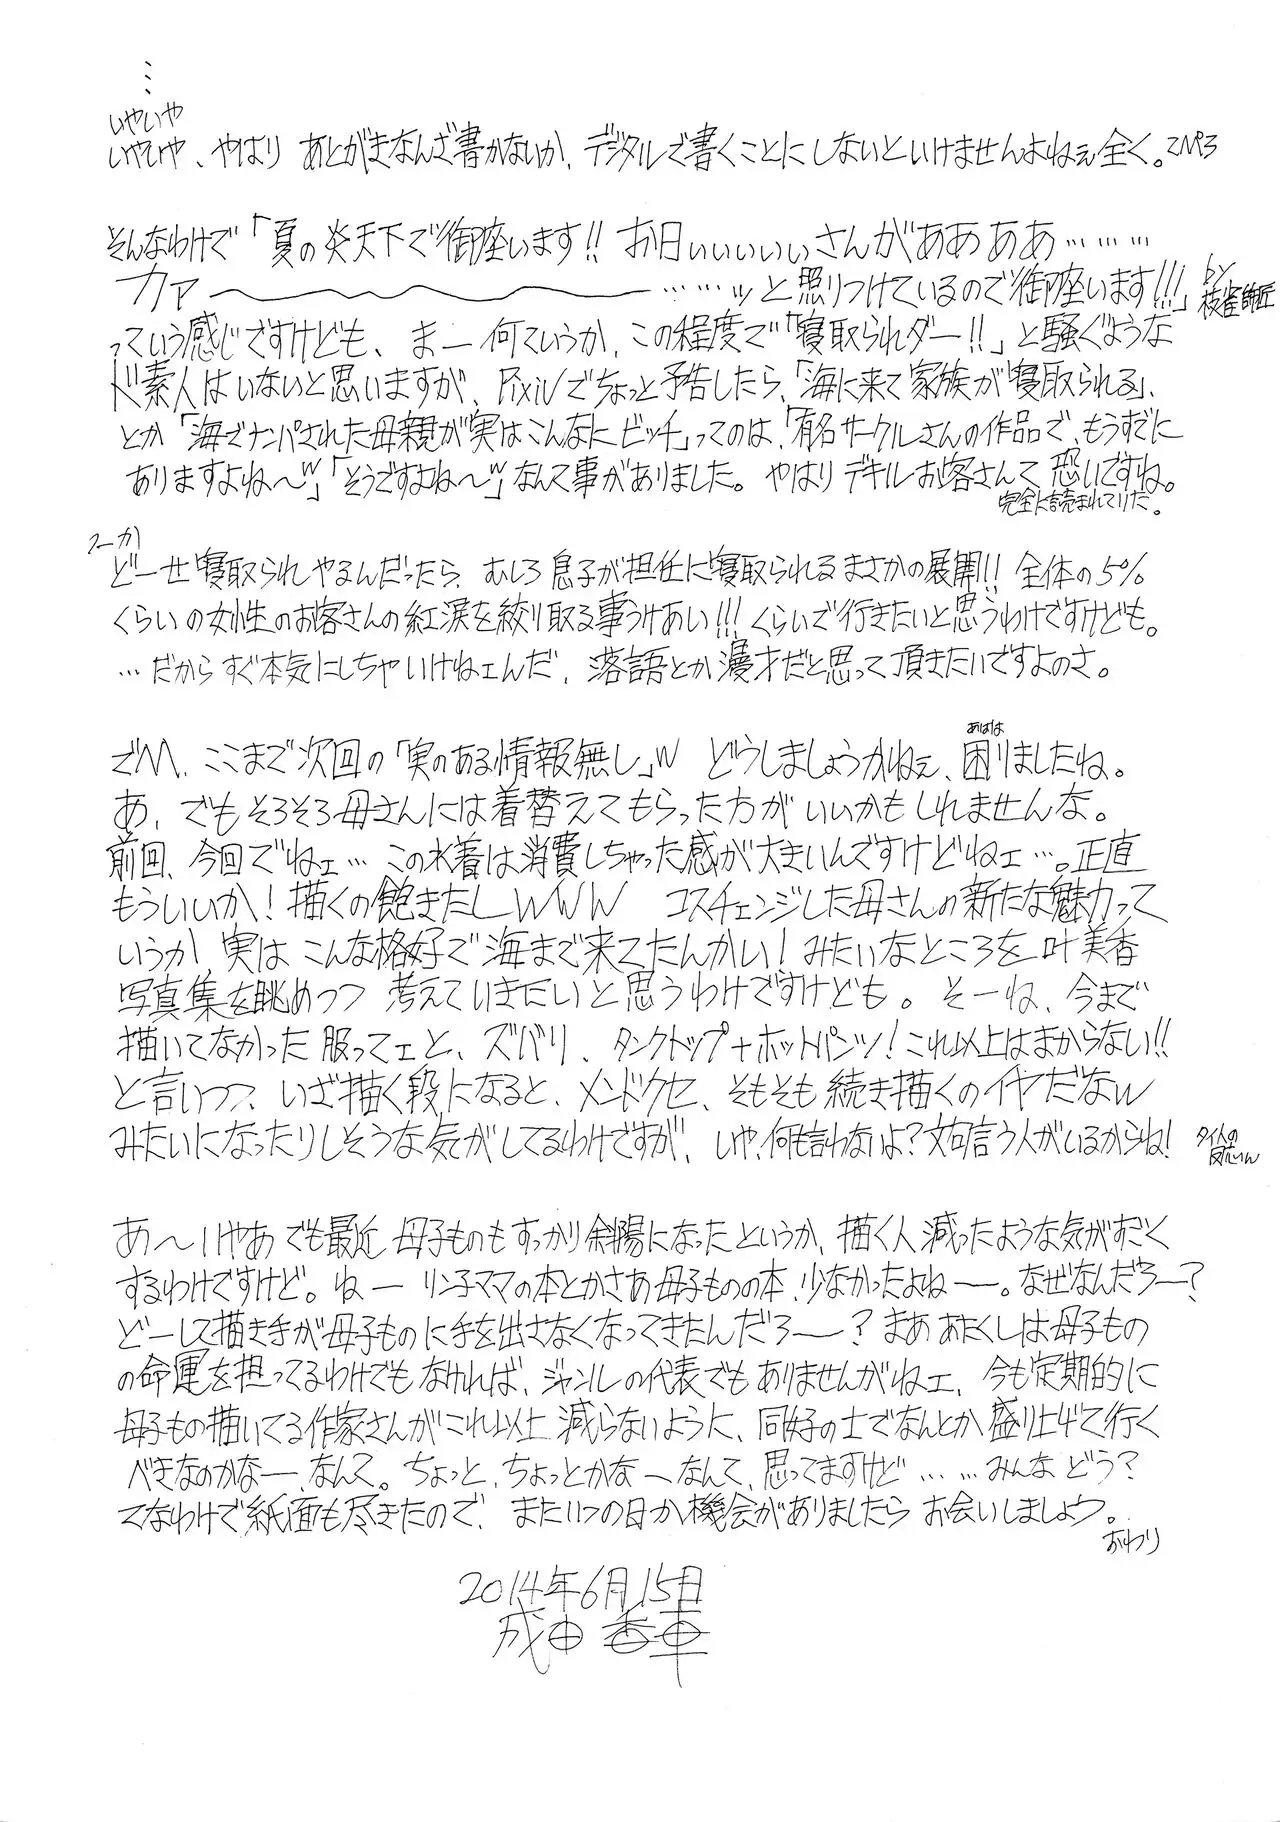 …
いやいや
いやいや、やはり あとがきなんざ書かないか、デジタルで書くことにしないといけませんよねぇ全く。てへぺろ
そんなわけで「夏の炎天下で御座います!! お日ぃぃぃぃぃさんがああああ………
カァ〜〜〜〜〜〜……ッと照りつけているので御座います!!!」by枝雀師匠
っていう感じですけども、まー何ていうか、この程度で「寝取られダー!!」と騒ぐような
ド素人はいないと思いますが、Pixivでちょっと予告したら、「海に来て家族が寝取られる」、
とか「海でナンパされた母親が実はこんなにビッチ」ってのは、「有名サークルさんの作品で、もうすでに
ありますよね〜w」「そうですよね〜w」なんて事がありました。やはりデキルお客さんて恐いですね。
完全に読まれていた。
つーか
どーせ寝取られやるんだったら、むしろ息子が担任に寝取られるまさかの展開!! 全体の5%
くらいの女性のお客さんの紅涙を絞り取る事うけあい!!! くらいで行きたいと思うわけですけども。
…だからすぐ本気にしちゃいけねェんだ、落語とか漫才だと思って頂きたいですよのさ。
でハ、ここまで次回の「実のある情報無し」w どうしましょうかねぇ、困りましたね。
あはは
あ、でもそろそろ母さんには着替えてもらった方がいいかもしれませんな。
前回、今回でねェ…この水着は消費しちゃった感が大きいんですけどねェ…。正直
もういいか!描くの飽きたしwww コスチェンジした母さんの新たな魅力って
いうか 実は こんな格好で海まで来てたんかい!みたいなところを叶美香
写真集を眺めつつ 考えていきたいと思うわけですけども。そーね、今まで
描いてなかった服ってェと、ズバリ、タンクトップ+ホットパンツ!これ以上はまからない!!
と言いつつ、いざ描く段になると、メンドクセ、そもそも続き描くのイヤだなw
みたいになったりしそうな気がしてるわけですが、いや、何も言わないよ?文句言う人がいるからね!
あ〜いやあでも最近 母子ものもすっかり斜陽になったというか、描く人減ったような気がすごく
するわけですけど。ねー リン子ママの本とかさあ母子ものの本、少なかったよねー。なぜなんだろー?
どーして描き手が母子ものに手を出さなくなってきたんだろー?まああたくしは母子もの
の命運を担ってるわけでもなければ、ジャンルの代表でもありませんがねェ、今も定期的に
母子もの描いてる作家さんがこれ以上減らないように、同好の士でなんとか盛り上げて行く
べきなのかなー、なんて。ちょっと、ちょっとかなーなんて、思ってますけど……みんなどう?
てなわけで紙面も尽きたので、またいつの日か機会がありましたらお会いしましょう。
おわり
2014年6月15日
成田香車